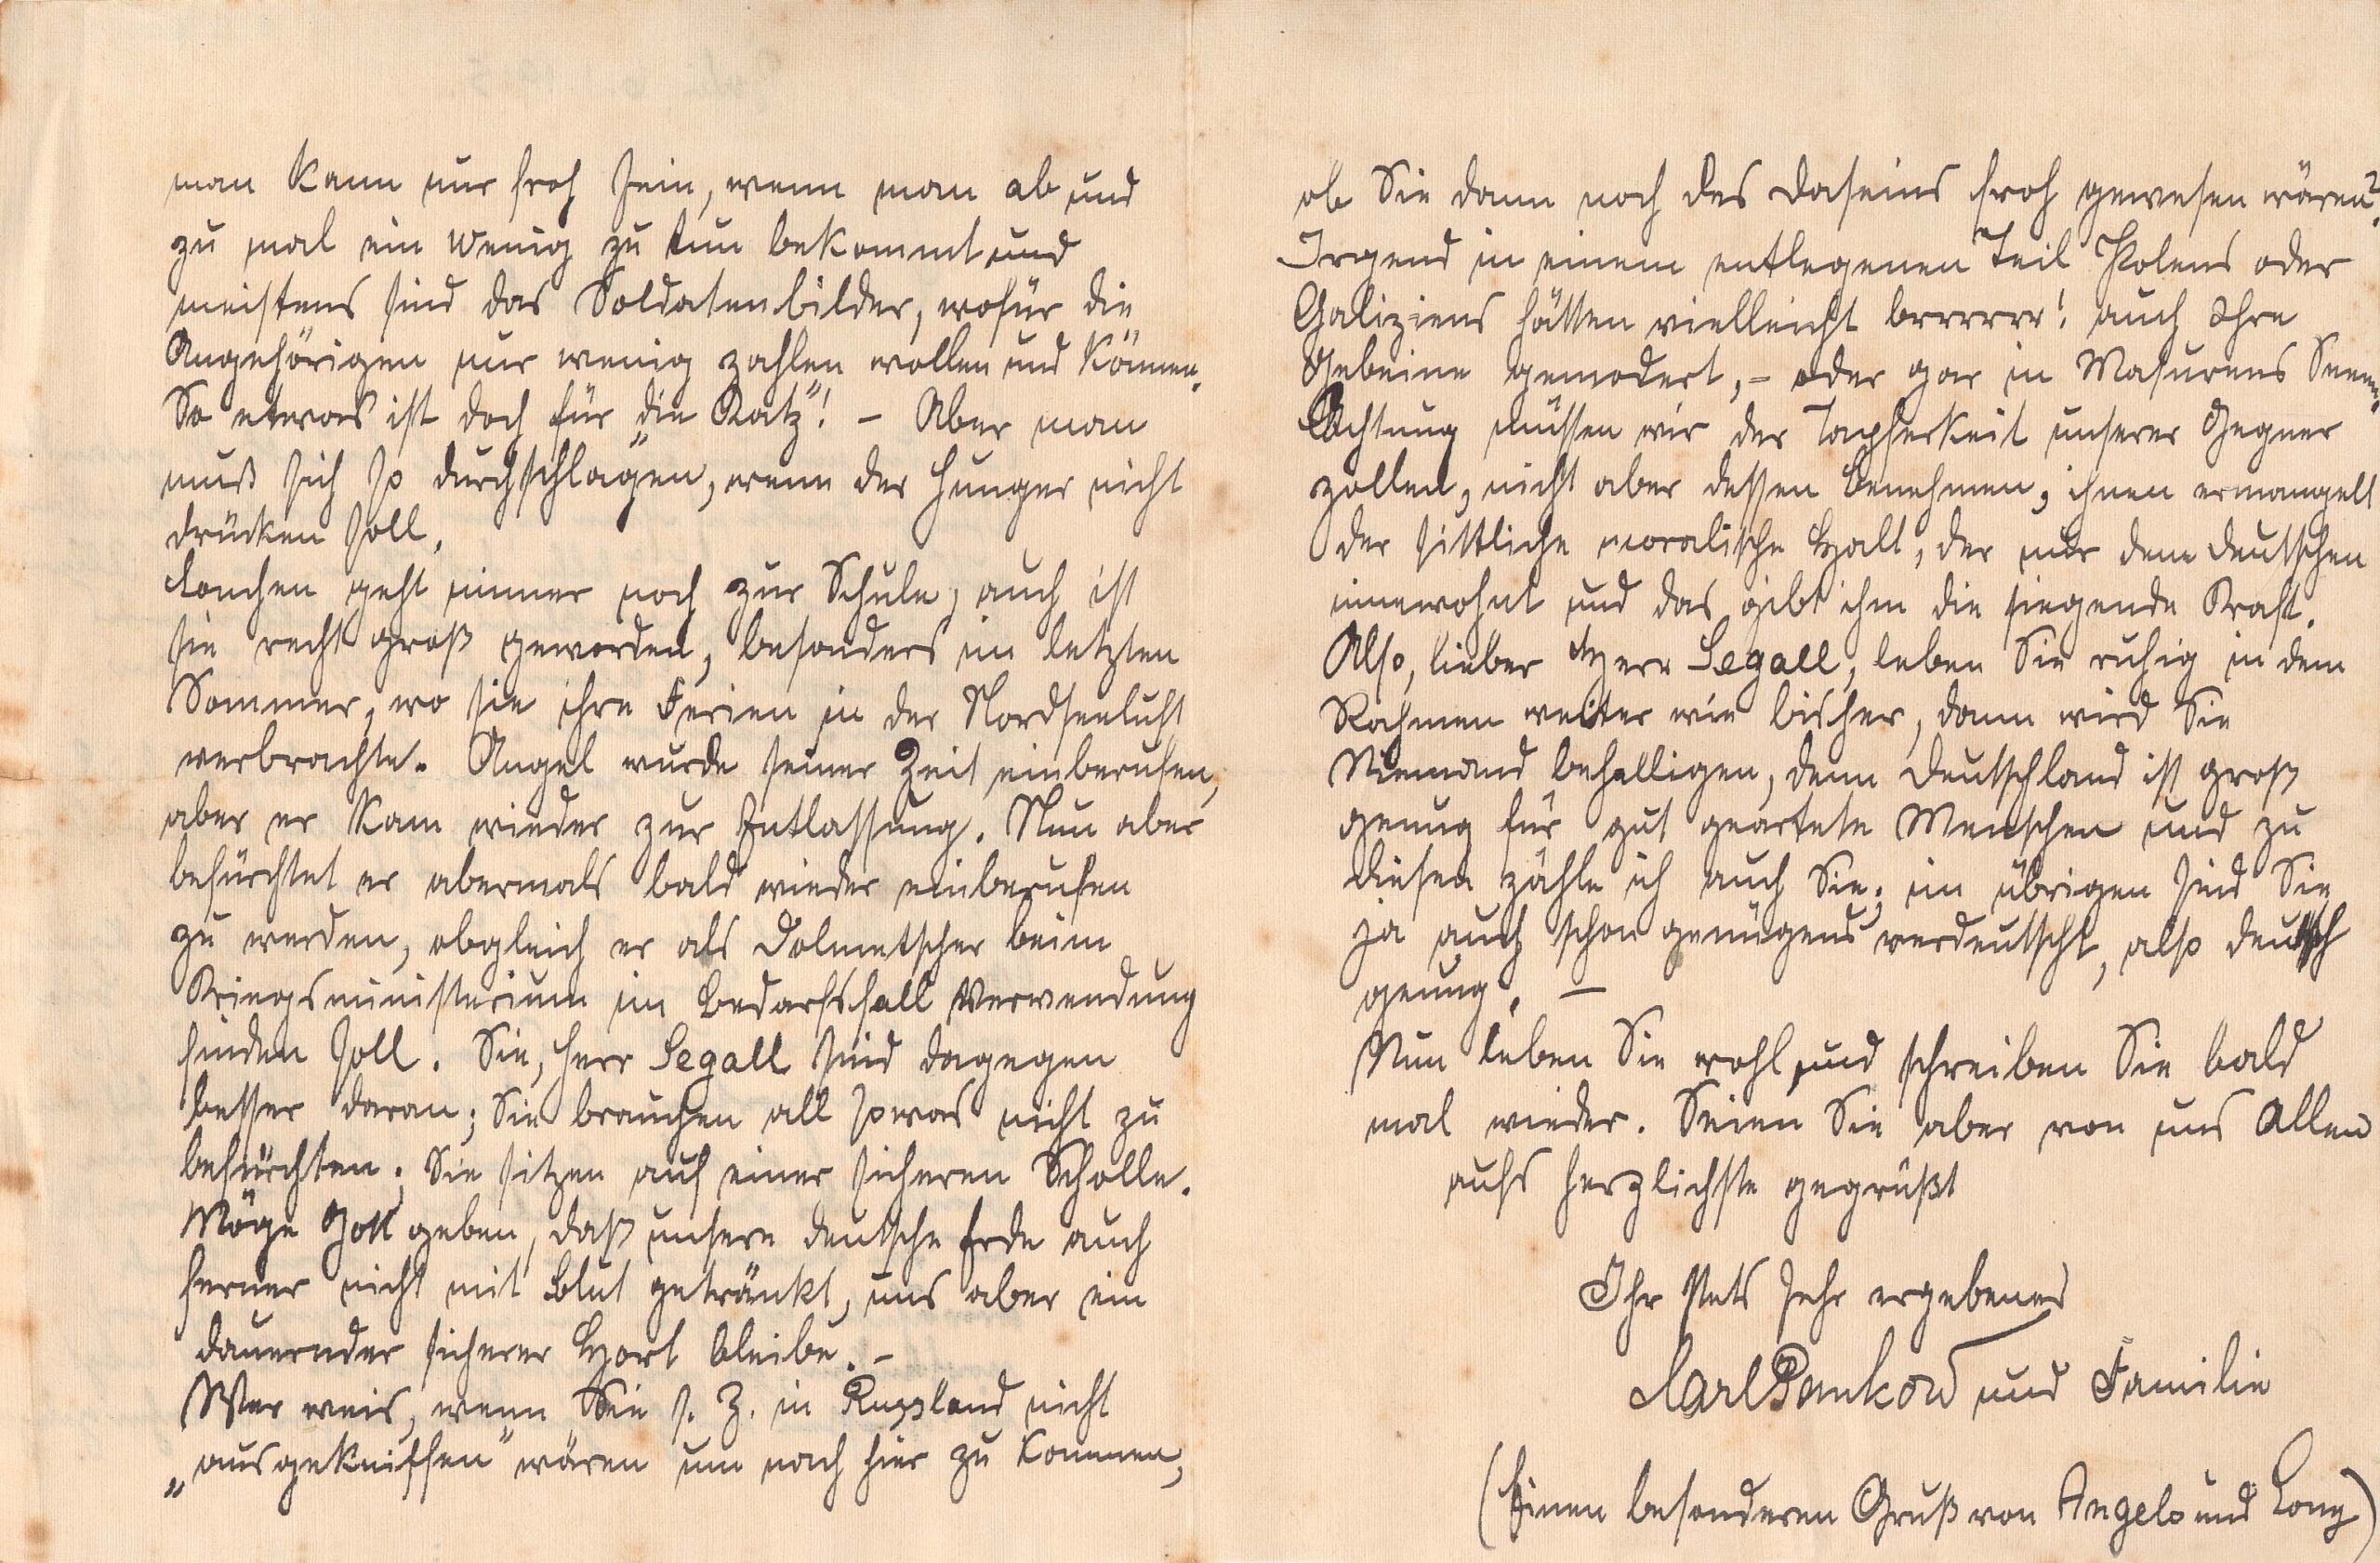 man kann nur froh sein, wenn man ab und
zu mal ein wenig zu tun bekommt und
meistens sind das Soldatenbilder, wofür die
Angehörigen nur wenig zahlen wollen und können.
So etwas ist doch für „die Katz“! – Aber man
muß sich so durchschlagen, wenn der Hunger nicht
drücken soll.
Lonchen geht immer noch zur Schule, auch ist
sie recht groß geworden, besonders im letzten
Sommer, wo sie ihre Ferien in der Nordseeluft
verbrachte. Angel wurde seiner Zeit einberufen,
aber er kam wieder zur Entlassung. Nun aber
befürchtet er abermals bald wieder einberufen
zu werden, obgleich er als Dolmetscher beim
Kriegsministerium im Bedarfsfall Verwendung
finden soll. Sie, Herr Segall sind dagegen
besser daran; Sie brauchen all sowas nicht zu
befürchten; Sie sitzen auf einer sicheren Scholle.
Möge Gott geben, daß unsere deutsche Erde auch
ferner nicht mit Blut getränkt, uns aber ein
dauernder sicherer Hort bleibe. –
Wer weis, wenn Sie s. Z. in Russland nicht
„ausgekniffen“ wären um nach hier zu kommen,
ob Sie dann noch des Daseins froh gewesen wären?
Irgend in einem entlegenen Teil Polens oder
Galiziens hätten vielleicht brrrrrr! auch Ihre
Gebeine gemodert, – oder gar in Masurens Seeen.
Achtung müssen wir der Tapferkeit unserer Gegner
zollen, nicht aber dessen Benehmen, ihnen ermangelt
der sittliche moralische Halt, der nur dem Deutschen
innewohnt und das gibt ihm die siegende Kraft.
Also, lieber Herr Segall, leben Sie ruhig in dem
Rahmen weiter wie bisher, dann wird Sie
Niemand behelligen, denn Deutschland ist groß
genug für gut geartete Menschen und zu
diesen zähle ich auch Sie; im übrigen sind Sie
ja auch schon genügend verdeutscht, also deutsch
genug. –
Nun leben Sie wohl und schreiben Sie bald
mal wieder. Seien Sie aber von uns Allen
aufs herzlichste gegrüßt
Ihr stets sehr ergebener
Carl Pankow und Familie
(Einen besonderen Gruß von Angelo und Lony)